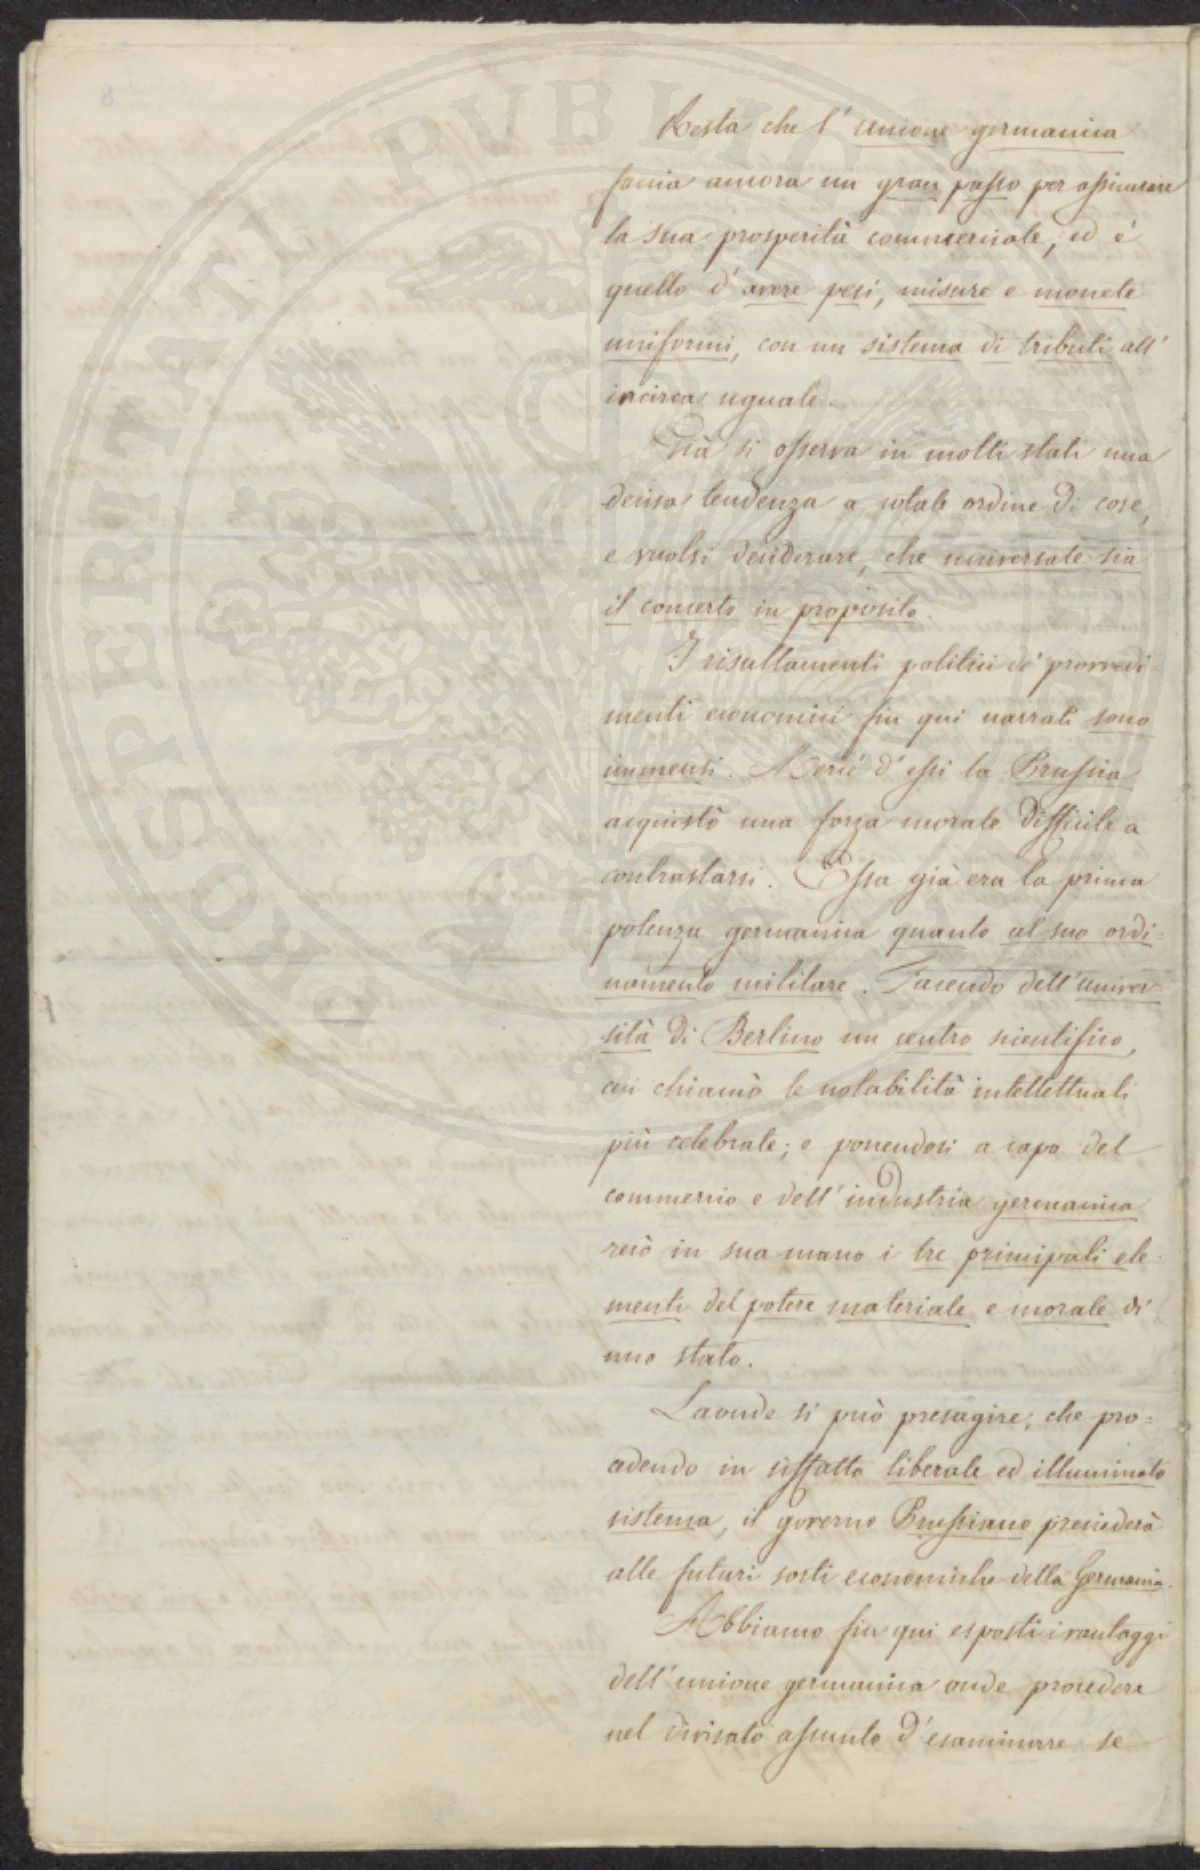 Resta che l'unione germanica
faccia ancora un gran passo per assicurare
la sua prosperità commerciale, ed è
quello d'avere pesi, misure e monete
uniformi, con un sistema di tributi all'
incirca uguale.
Già si osserva in molti stati una
decisa tendenza a cotale ordine di cose,
e vuolsi desiderare, che universale sia
il concerto in proposito.
I risultamenti politici de' provvedi-
menti economici fin qui narrati sono
immensi. Mercè d'essi la Prussia
acquistò una forza morale difficile a
contrastarsi. Essa già era la prima
potenza germanica quanto al suo ordi=
namento militare. Facendo dell'Univer-
sità di Berlino un centro scientifico,
cui chiamò le notabilità intellettuali
più celebrate; e ponendosi a capo del
commercio e dell'industria germanica
recò in sua mano i tre principali ele-
menti del potere materiale e morale di
uno stato.
Laonde si può presagire, che pro=
cedendo in siffatto liberale ed illuminato
sistema, il governo Prussiano presiederà
alle futuri sorti economiche della Germania.
Abbiamo fin qui esposti i vantaggi
dell'unione germanica onde procedere
nel divisato assunto d'esaminare se
PROSPERITATI PUBLICAE